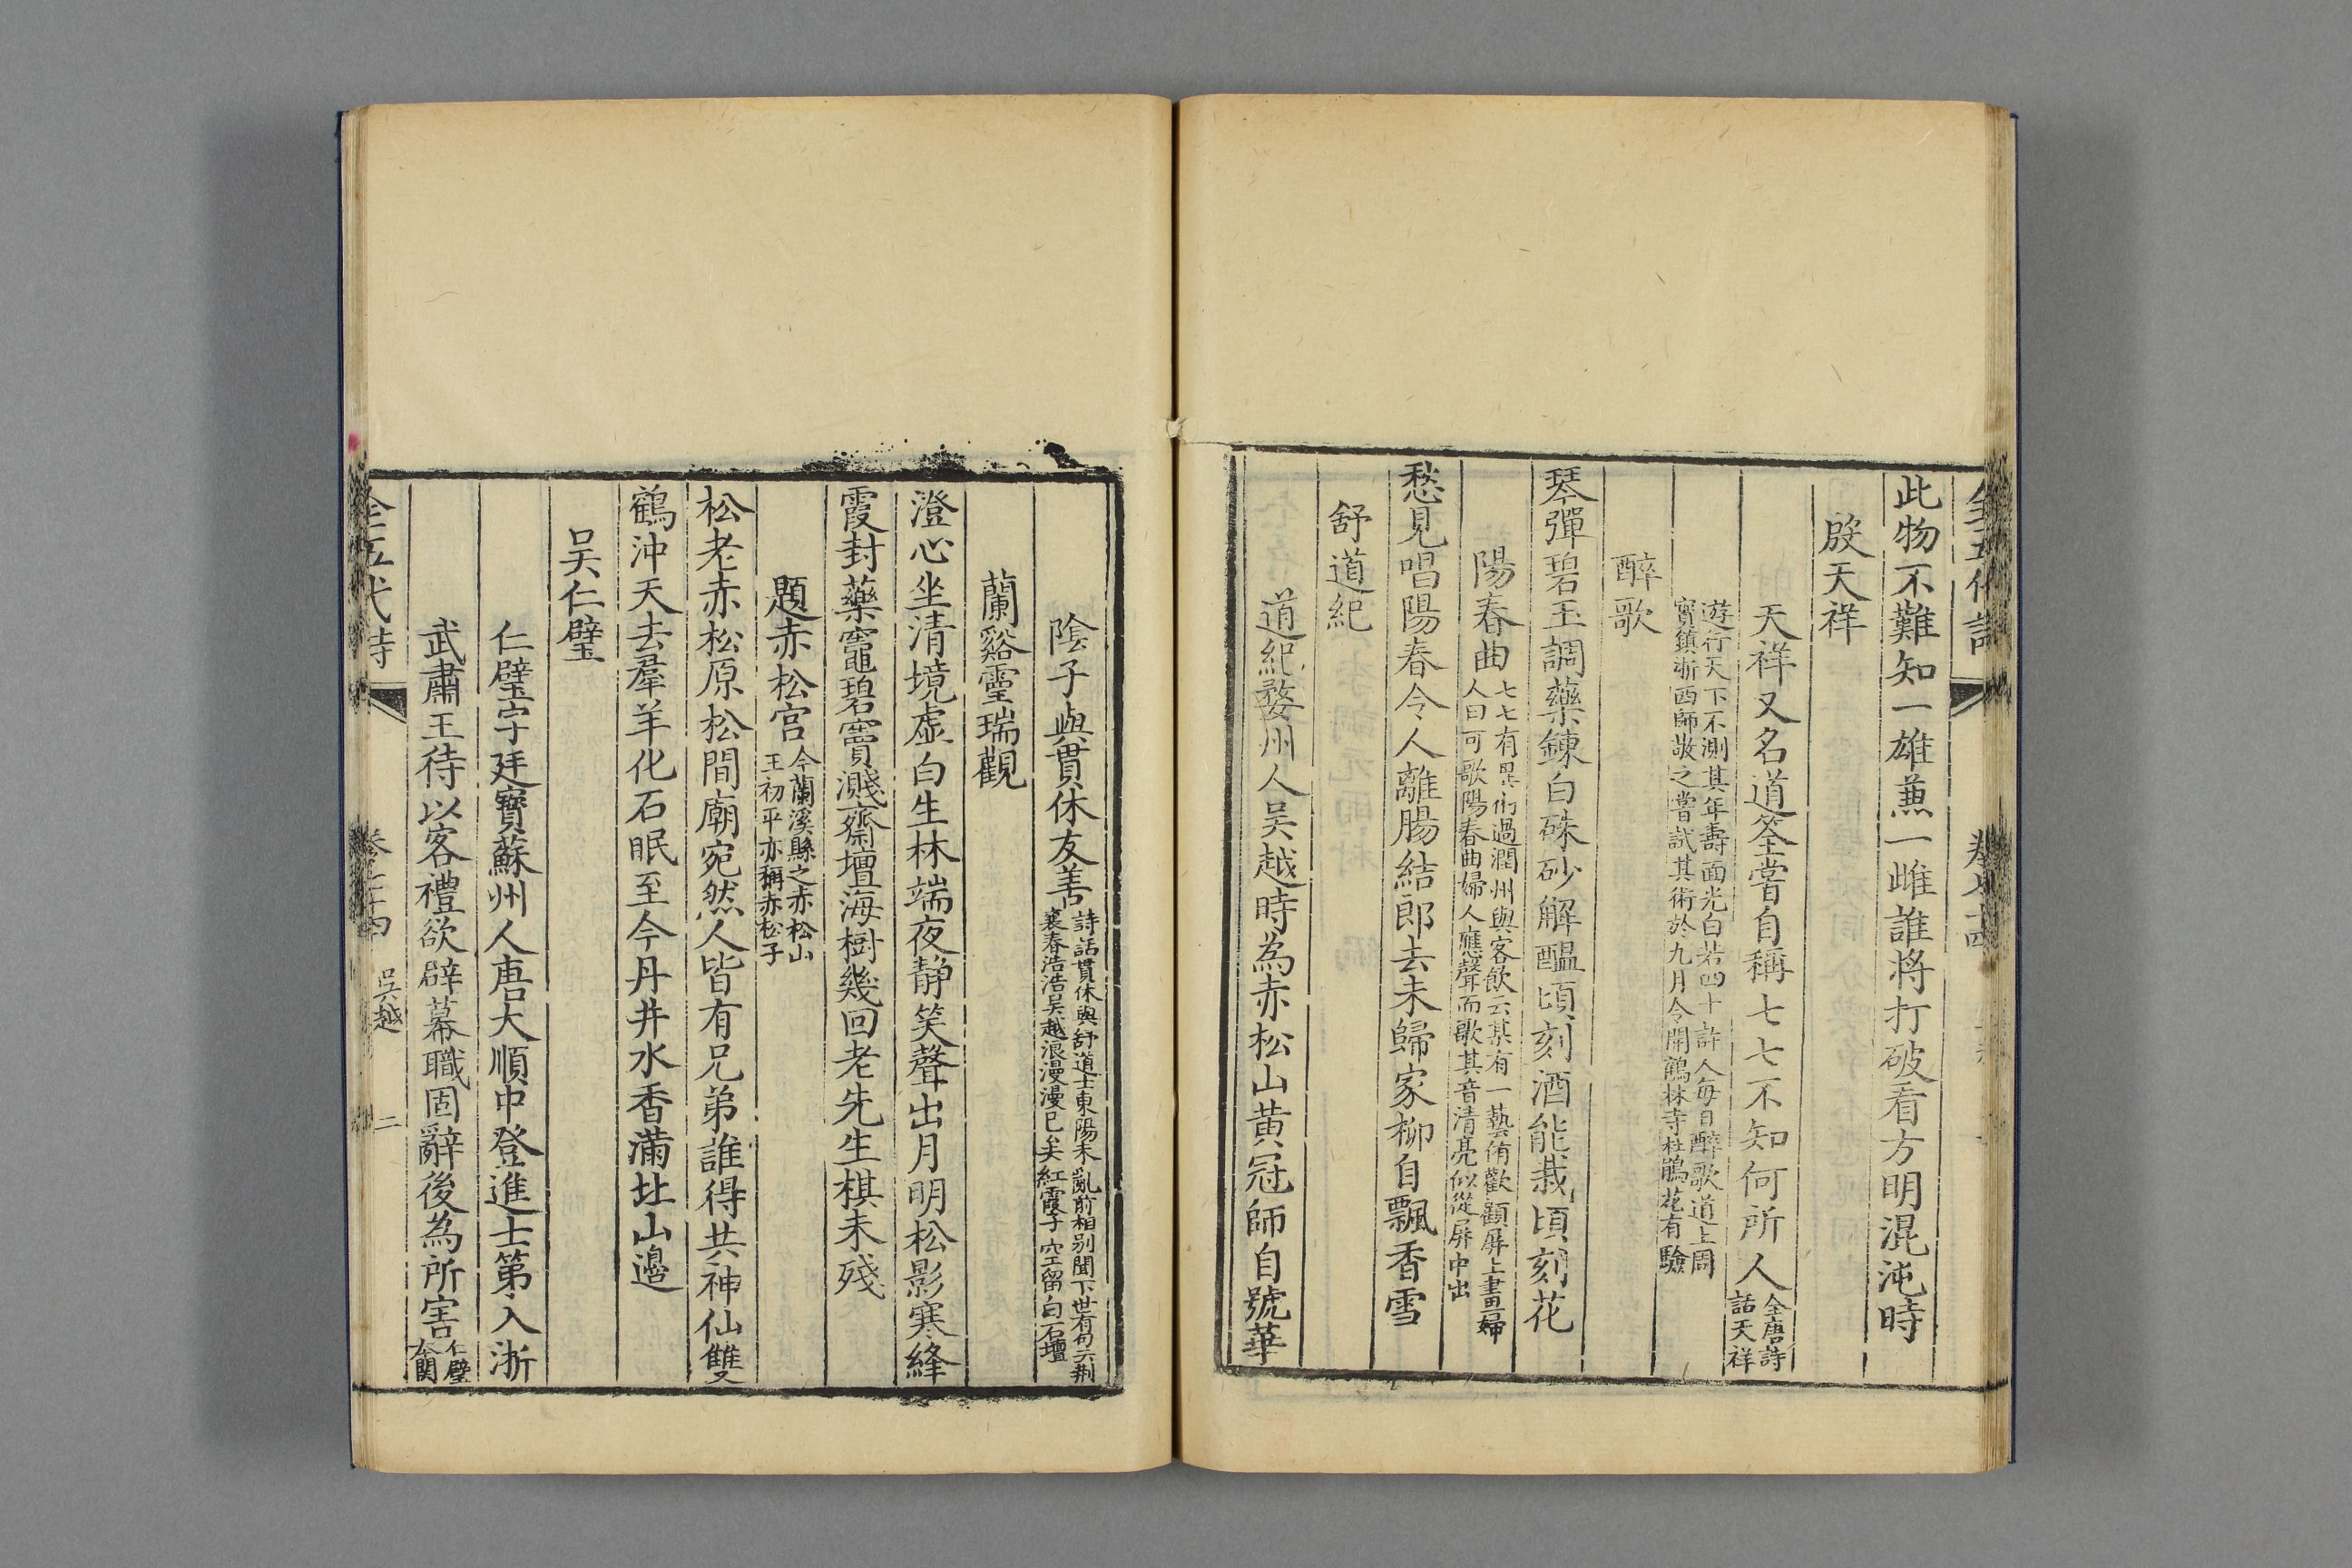 此物不難知一雄兼一雌誰將打破看方明混沌時
殷天祥
天祥又名道筌嘗自稱七七不知何所人全唐詩
話天祥
遊行天下不測其年壽面光白若四十許人每日醉歌道上周
寶鎮浙西師敬之嘗試其術於九月令開鶴林寺杜鵑花有驗
醉歌
琴彈碧玉調藥鍊白硃砂解醞頃刻酒能栽頃刻花
陽春曲七七有異術過潤州與客飲云某有一藝侑歡顧屏上畫婦
人曰可歌陽春曲婦人應聲而歌其音清亮似從屏中出
愁見唱陽春令人離腸結郎去未歸家柳自飄香雪
舒道紀
道紀婺州人吴越時為赤松山黄冠師自號華
陰子與貫休友善詩話貫休與舒道士東陽未亂前相别聞下世有句云荆
襄春浩浩吴越浪漫漫已矣紅霞子空留白石壇
蘭谿靈瑞觀
澄心坐清境虚白生林端夜静笑聲出月明松影寒絳
霞封藥竈碧竇濺齋壇海樹幾回老先生棋未殘
題赤松宫今蘭溪縣之赤松山
王初平亦稱赤松子
松老赤松原松間廟宛然人皆有兄弟誰得共神仙雙
鶴沖天去羣羊化石眠至今丹井水香滿北山邊
吴仁璧
仁璧字廷寶蘇州人唐大順中登進士第入浙
武肅王待以客禮欲辟幕職固辭後為所害仁璧
本關
全五代詩
吴越
二